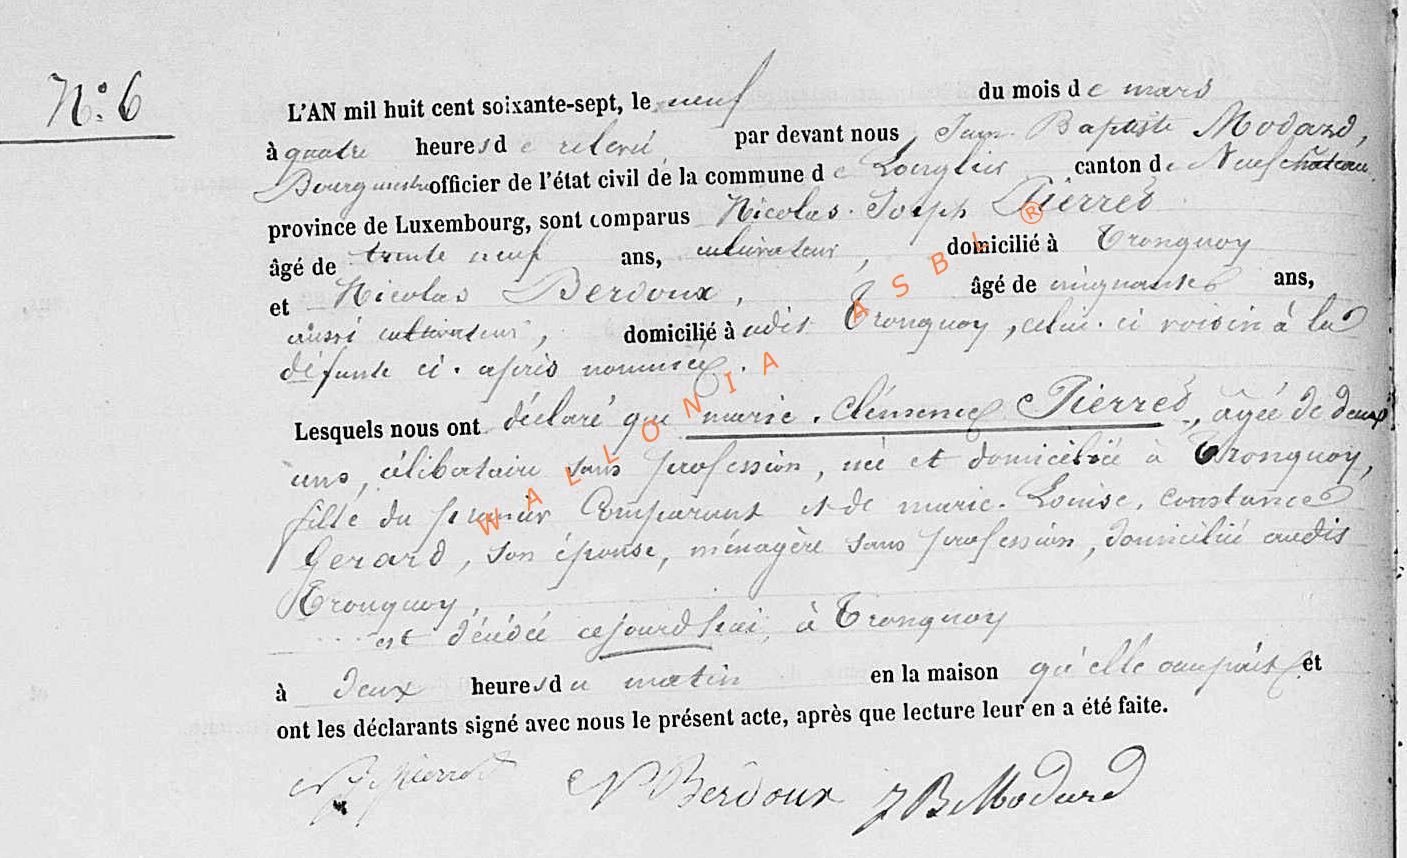 N° 6
L'AN mil huit cent soixante-sept, le neuf du mois de mars
à quatre heures de relevé, par devant nous, Jean Baptiste Modard,
Bourgmestre officier de l'état civil de la commune de Longlier canton de Neufchâteau,
province de Luxembourg, sont comparus Nicolas Joseph Pierret
âgé de trente neuf ans, cultivateur, domicilié à Tronquoy
et Nicolas Berdoux, âgé de cinquante ans,
aussi cultivateur, domicilié à audit Tronquoy, celui-ci voisin à la
défunte ci-après nommée.
Lesquels nous ont déclaré que marie. Clémence Pierret, agée de deux
ans, célibataire sans profession, née et domiciliée à Tronquoy,
fille du premier Comparant et de marie. Louise. Constance
Gerard, son épouse, ménagère sans profession, domicilié audit
Tronquoy,
est décédée cejourd'hui, à Tronquoy
à deux heures du matin en la maison qu'elle occupait et
ont les déclarants signé avec nous le présent acte, après que lecture leur en a été faite.
NJ Pierret N Berdoux JB Modard
WALLONIA ASBL ®